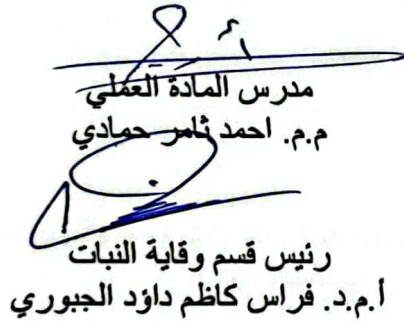 مدرس المادة العملي
م.م. احمد ثامر حمادي
رئيس قسم وقاية النبات
أ.م.د. فراس كاظم داؤد الجبوري